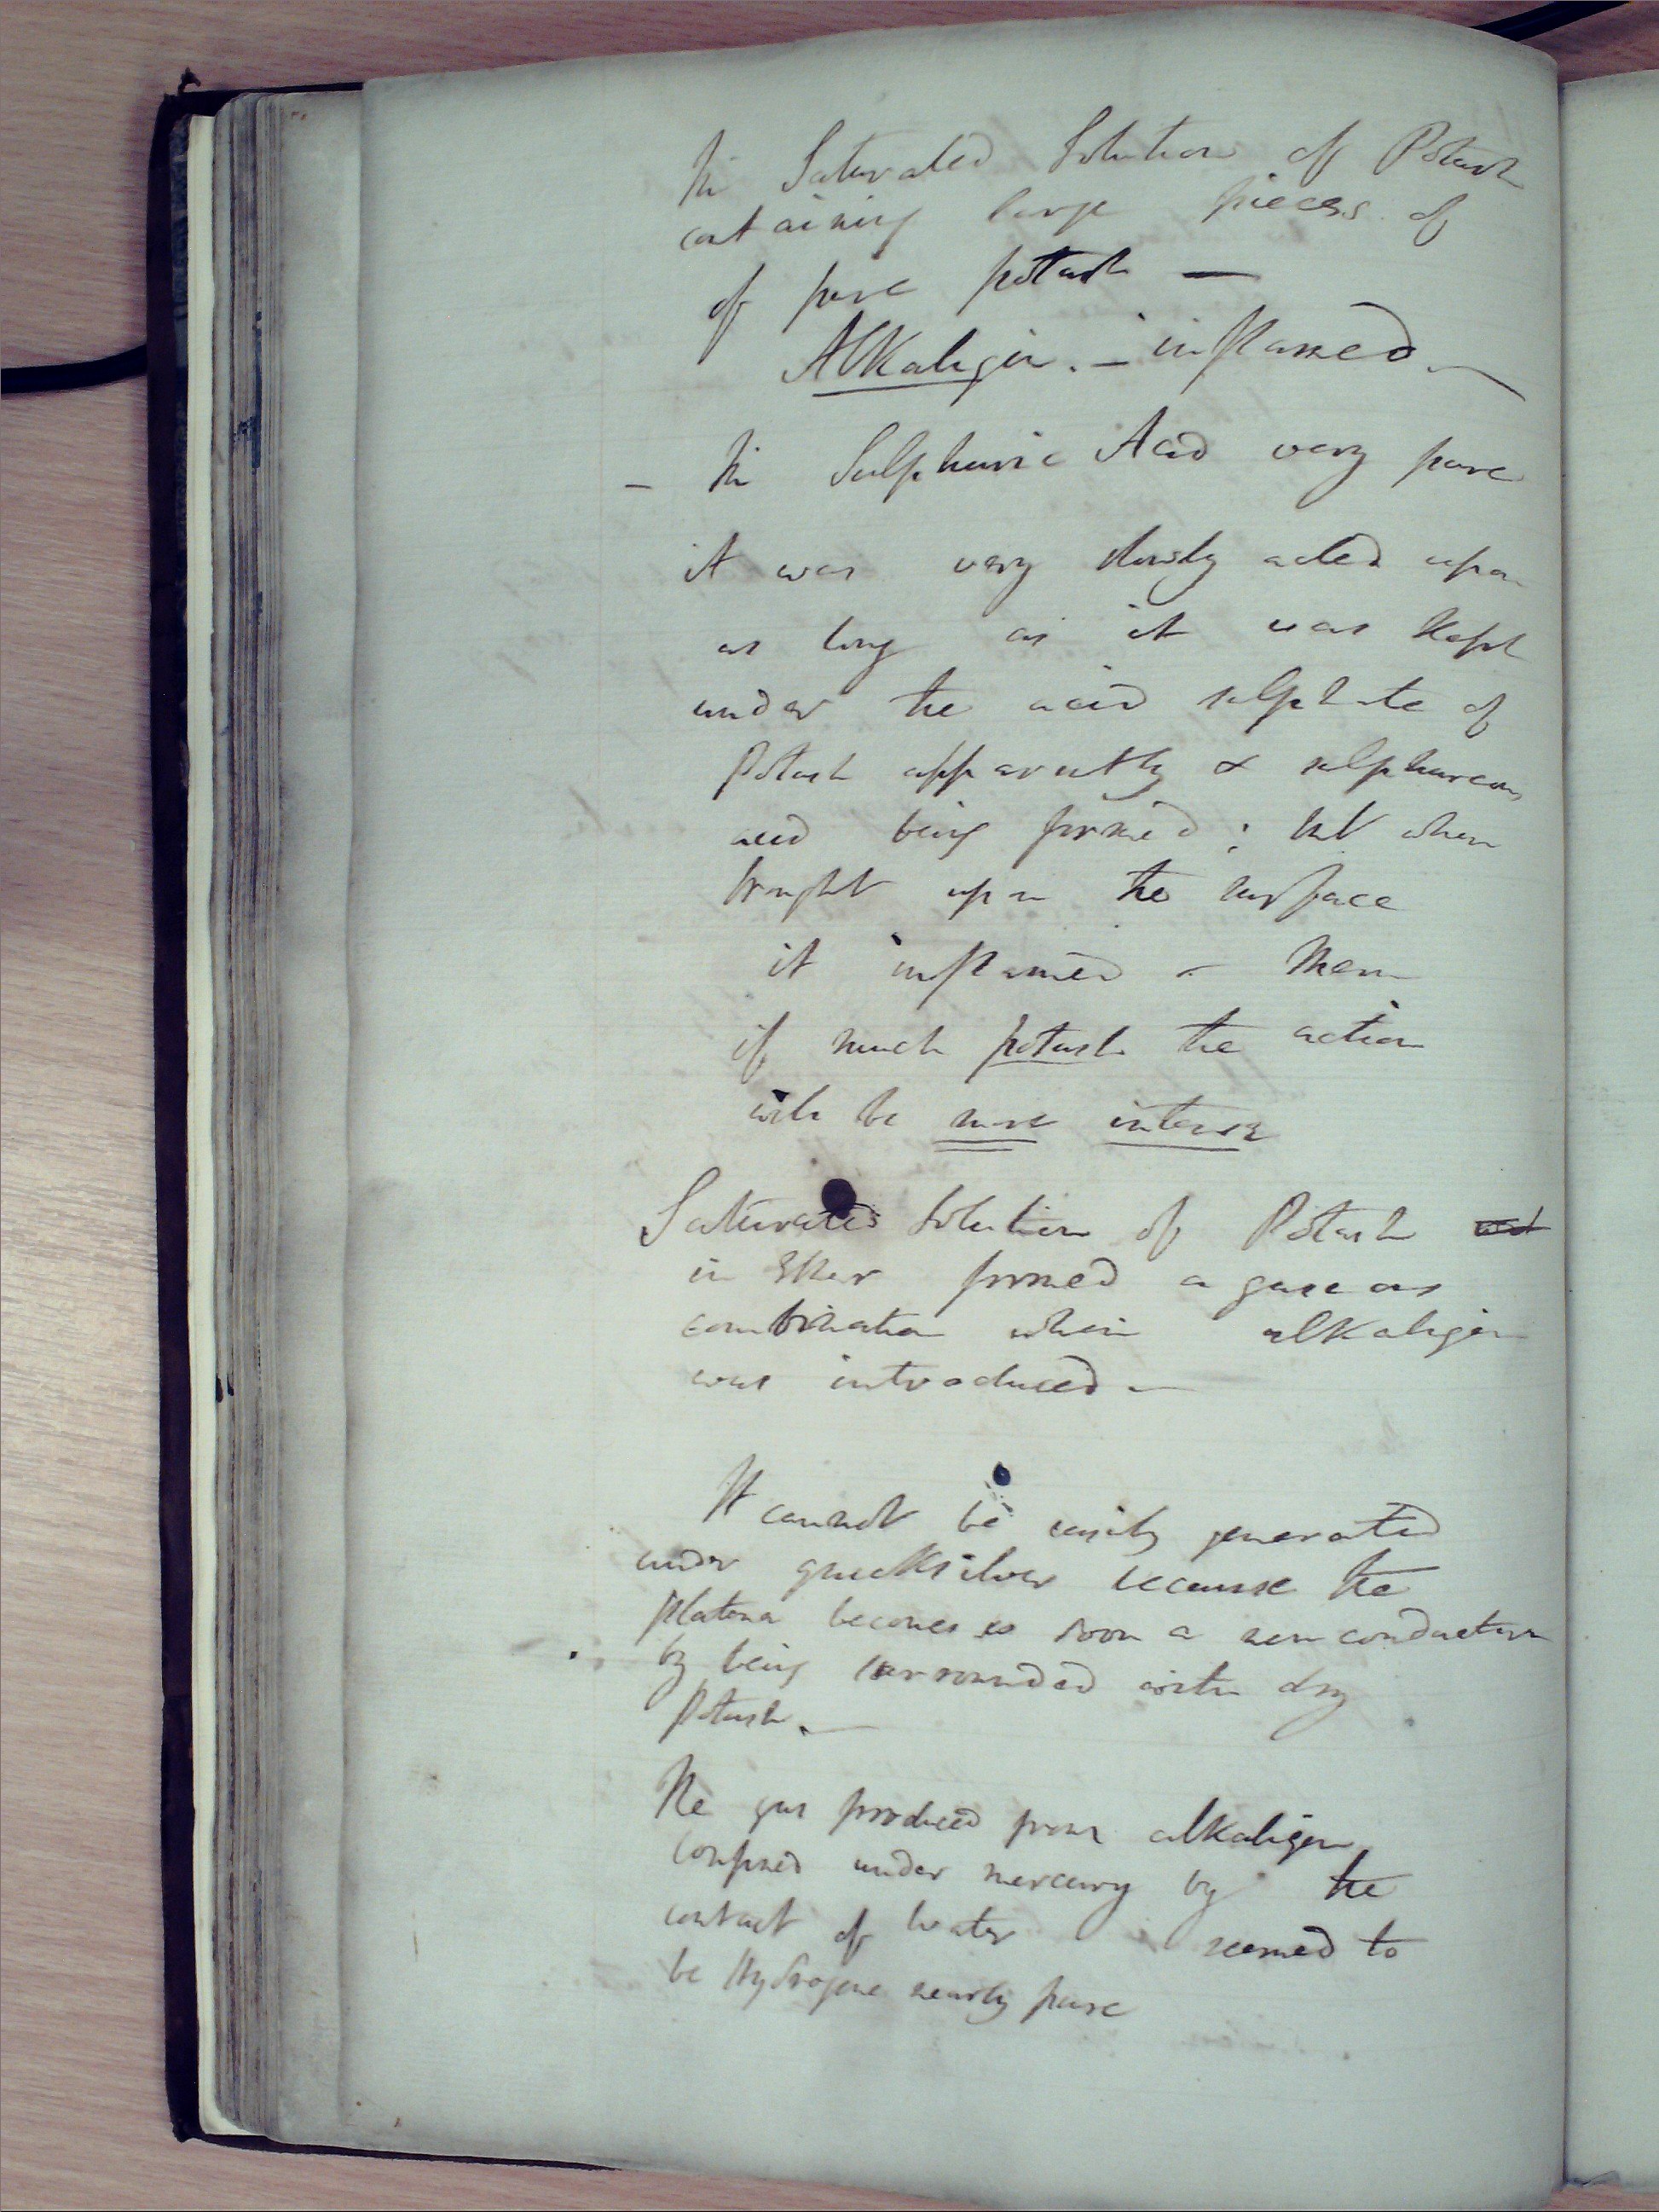 In Saturated Solution of Potash
containing large pieces of
of pure potash —
Alkaligen. – inflamed –
– In Sulphuric Acid very pure
it was very slowly acted upon
as long as it was kept
under the acid sulphate of
Potash apparently & sulphureous
acid being formed; but when
brought upon the surface
it inflamed –
if much potash the action
will be more intense
Saturated Solution of Potash
in Ether formed a gaseous
combination when alkaligen
was introduced –
It cannot be easily generated
under quicksilver because the
platina becomes so soon a non conductor
by being surrounded with dry
Potash. –
The gas produced from alkaligen
confined under mercury by the
contact of water seemed to
be Hydrogene nearly pure